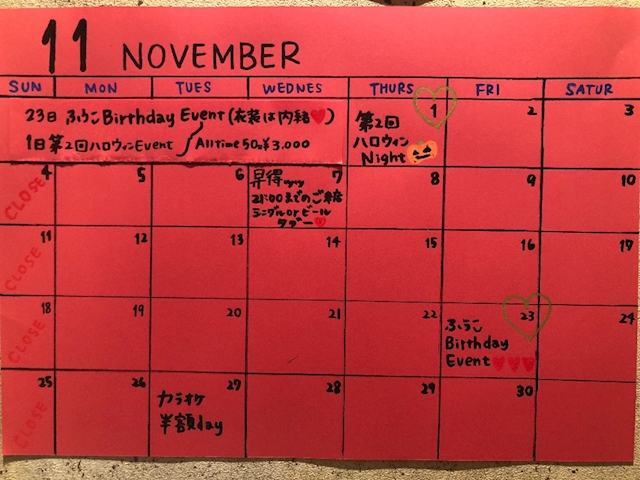 11 NOVEMBER
SUN MON TUES WEDNES THURS FRI SATUR
23日 ふうこ Birthday Event (衣装は内緒♥)
1日第2回ハロウィンEvent
All time 50% ¥3.000
1
第2回
ハロウィン
Night
2
3
4
CLOSE
5
6
7
21:00までのご来店
シングル or ビール
8
9
10
11
CLOSE
12
13
14
15
16
17
18
CLOSE
19
20
21
22
23
ふうこ
Birthday
Event ♥♥♥
24
25
CLOSE
26
27
カラオケ
半額day
28
29
30